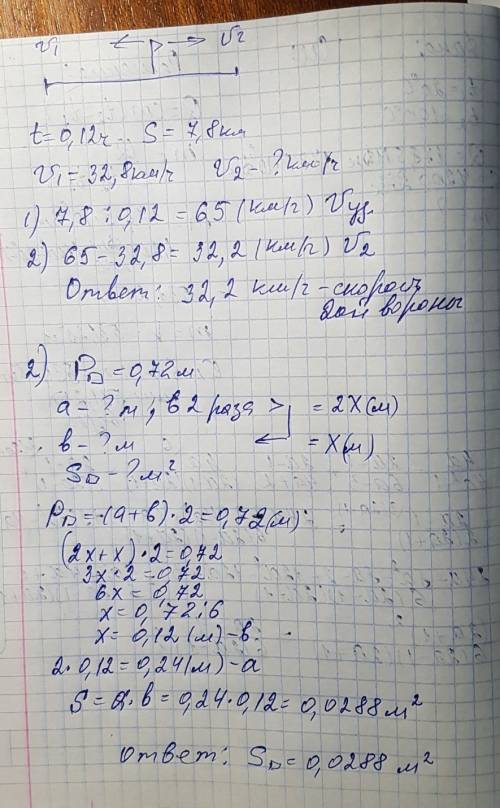 v₁ ← → v₂
t = 0,12ч S = 7,8км
v₁ = 32,8км/ч v₂ - ? км/ч
1) 7,8 : 0,12 = 65 (км/ч) Vуд.
2) 65 - 32,8 = 32,2 (км/ч) v₂
Ответ: 32,2 км/ч - скорость
2ой вороны
2) P▭ = 0,72м
a - ? м, в 2 раза > = 2x(м)
в - ? м = x(м)
S▭ - ? м²
P▭ = (a+в)·2 = 0,72(м)
(2x+x)·2 = 0,72
3x·2 = 0,72
6x = 0,72
x = 0,72:6
x = 0,12 (м) - в
2·0,12 = 0,24(м) - a
S = a·в = 0,24·0,12 = 0,0288 м²
Ответ: S▭ = 0,0288 м²